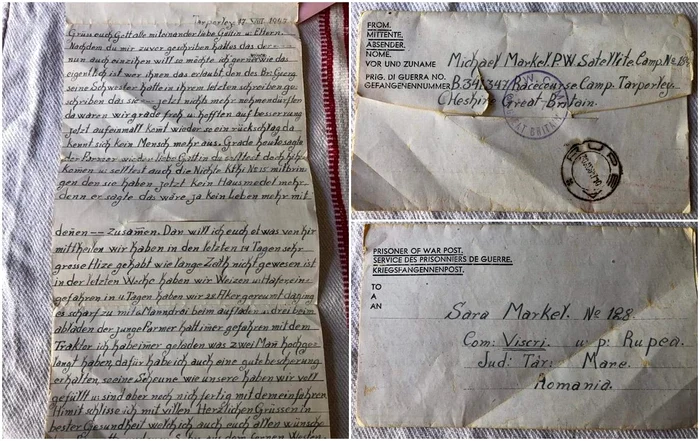 Tarporley, 17. VIII. 1947
Grüss euch Gott alle miteinander liebe Gattin u. Eltern.
Nachdem du mir zuvor geschriben hattes das der
nun auch einzihen will so möchte ich gerne wie das
eigentlich ist wer ihnen das erlaubt, den des Br: Georg
seine Schwester hatte in ihrem letzten schreiben ge
schriben das sie --- jetzt nichts mehr nehmen dürften
da waren wir grade froh u. hofften auf besserung
jetzt auf einmall komt wieder so ein rückschlag da
kennt sich kein Mensch mehr aus. Grade heute sagte
der Farmer wieder liebe Gattin du solltest doch hir
komen u. solltest auch die Nichte Kth. Nr 15 mitbrin
gen den sie haben jetzt kein Hausmedel mehr
denn er sagte das wäre ja kein leben mehr mit
denen --- zusamen. Dan will ich euch etwas von hir
mittheilen wir haben in den letzten 14 Tagen sehr
grosse Hize gehabt wie lange Zeit nicht gewesen ist
in der letzten Woche haben wir Weizen u. Hafer eine
gefahren in 4 Tagen haben wir 25 Aker gereumt da ging
es scharf zu mit 6 Mann drei beim aufladen u. drei beim
abladen der junge Farmer hatt imer gefahren mit dem
Traktor ich habe imer geladen was zwei Man hochge
langt haben, dafür habe ich auch eine gute bescherung
erhalten, so eine Scheune wie unsere haben wir voll
gefüllt u. sind aber noch nich fertig mit dem einfahren.
Hirmit schlisse ich mit villen Herzlichen Grüssen in
bester Gesundheit welch ich auch euch allen wünsche
FROM.
MITTENTE.
ABSENDER.
NOME.
VOR UND ZUNAME Michael Markel. P.W. Satellite Camp. No 189.
PRIG. DI GUERRA NO.
GEFANGENENNUMMER B.341347. Racecourse Camp. Tarporley.
Cheshire Great-Britain.
RUPEA
PRISONER OF WAR POST.
SERVICE DES PRISONNIERS DE GUERRE.
KRIEGSFANGENNENPOST.
TO
A
AN
Sara Markel. No 128.
Com: Viscri. u. p: Rupea.
Jud: Târ: Mare.
Romania.